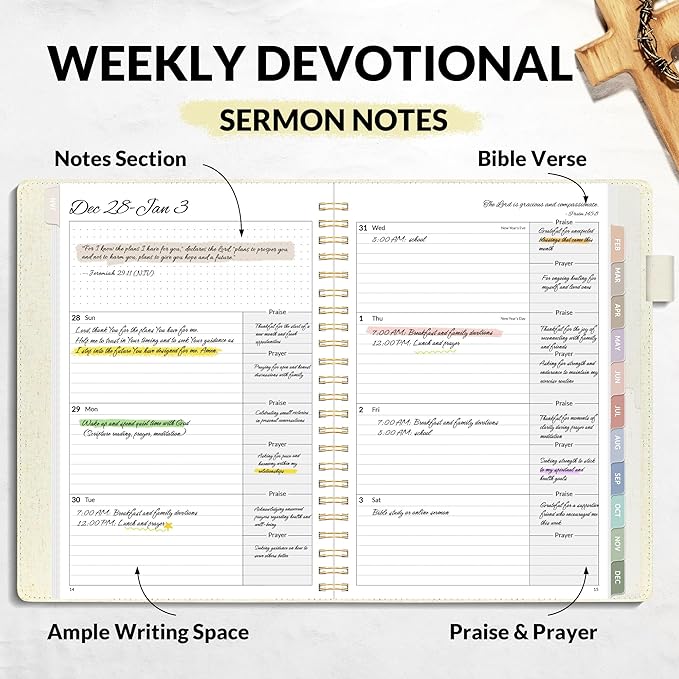 WEEKLY DEVOTIONAL
SERMON NOTES
Notes Section
Bible Verse
JAN
Dec 28-Jan 3
"For I know the plans I have for you," declares the Lord, "plans to prosper you
and not to harm you, plans to give you hope and a future."
—Jeremiah 29:11 (NIV)
28 Sun
Lord, thank You for the plans You have for me.
Help me to trust in Your timing and to seek Your guidance as
I step into the future You have designed for me. Amen.
Praise
Thankful for the start of a
new month and fresh
opportunities
Prayer
Praying for open and honest
discussions with family
29 Mon
Wake up and spend quiet time with God
(Scripture reading, prayer, meditation)
Praise
Celebrating small victories
in personal conversations
Prayer
Asking for peace and
harmony within my
relationships
30 Tue
7:00 AM: Breakfast and family devotions
12:00 PM: Lunch and prayer
Praise
Acknowledging answered
prayers regarding health and
well-being
Prayer
Seeking guidance on how to
serve others better
14
The Lord is gracious and compassionate.
—Psalm 145:8
31 Wed
New Year's Eve
5:00 AM: school
Praise
Grateful for unexpected
blessings that came this
month
Prayer
For ongoing healing for
myself and loved ones
1 Thu
New Year's Day
7:00 AM: Breakfast and family devotions
12:00 PM: Lunch and prayer
Praise
Thankful for the joy of
reconnecting with family
and friends
Prayer
Asking for strength and
endurance to maintain my
exercise routine
2 Fri
7:00 AM: Breakfast and family devotions
5:00 AM: school
Praise
Thankful for moments of
clarity during prayer and
meditation
Prayer
Seeking strength to stick
to my spiritual and
health goals
3 Sat
Bible study or online sermon
Praise
Grateful for a supportive
friend who encouraged me
this week
Prayer
15
FEB
MAR
APR
MAY
JUN
JUL
AUG
SEP
OCT
NOV
DEC
Ample Writing Space
Praise & Prayer